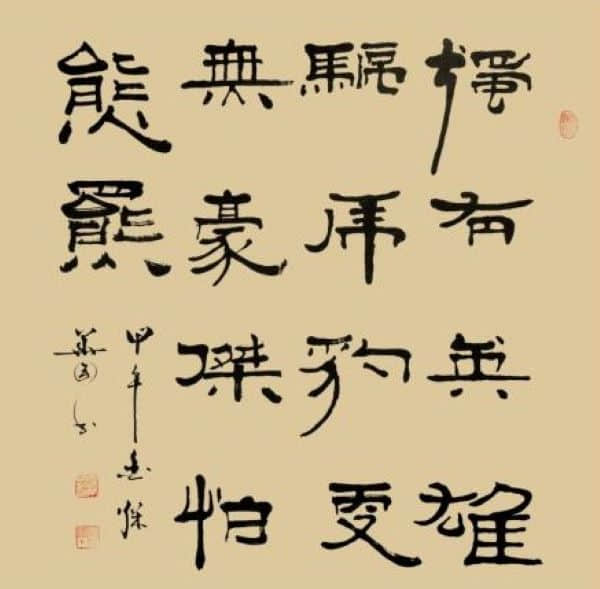 獨有英雄
驅虎豹更
無豪傑怕
熊羆
甲午